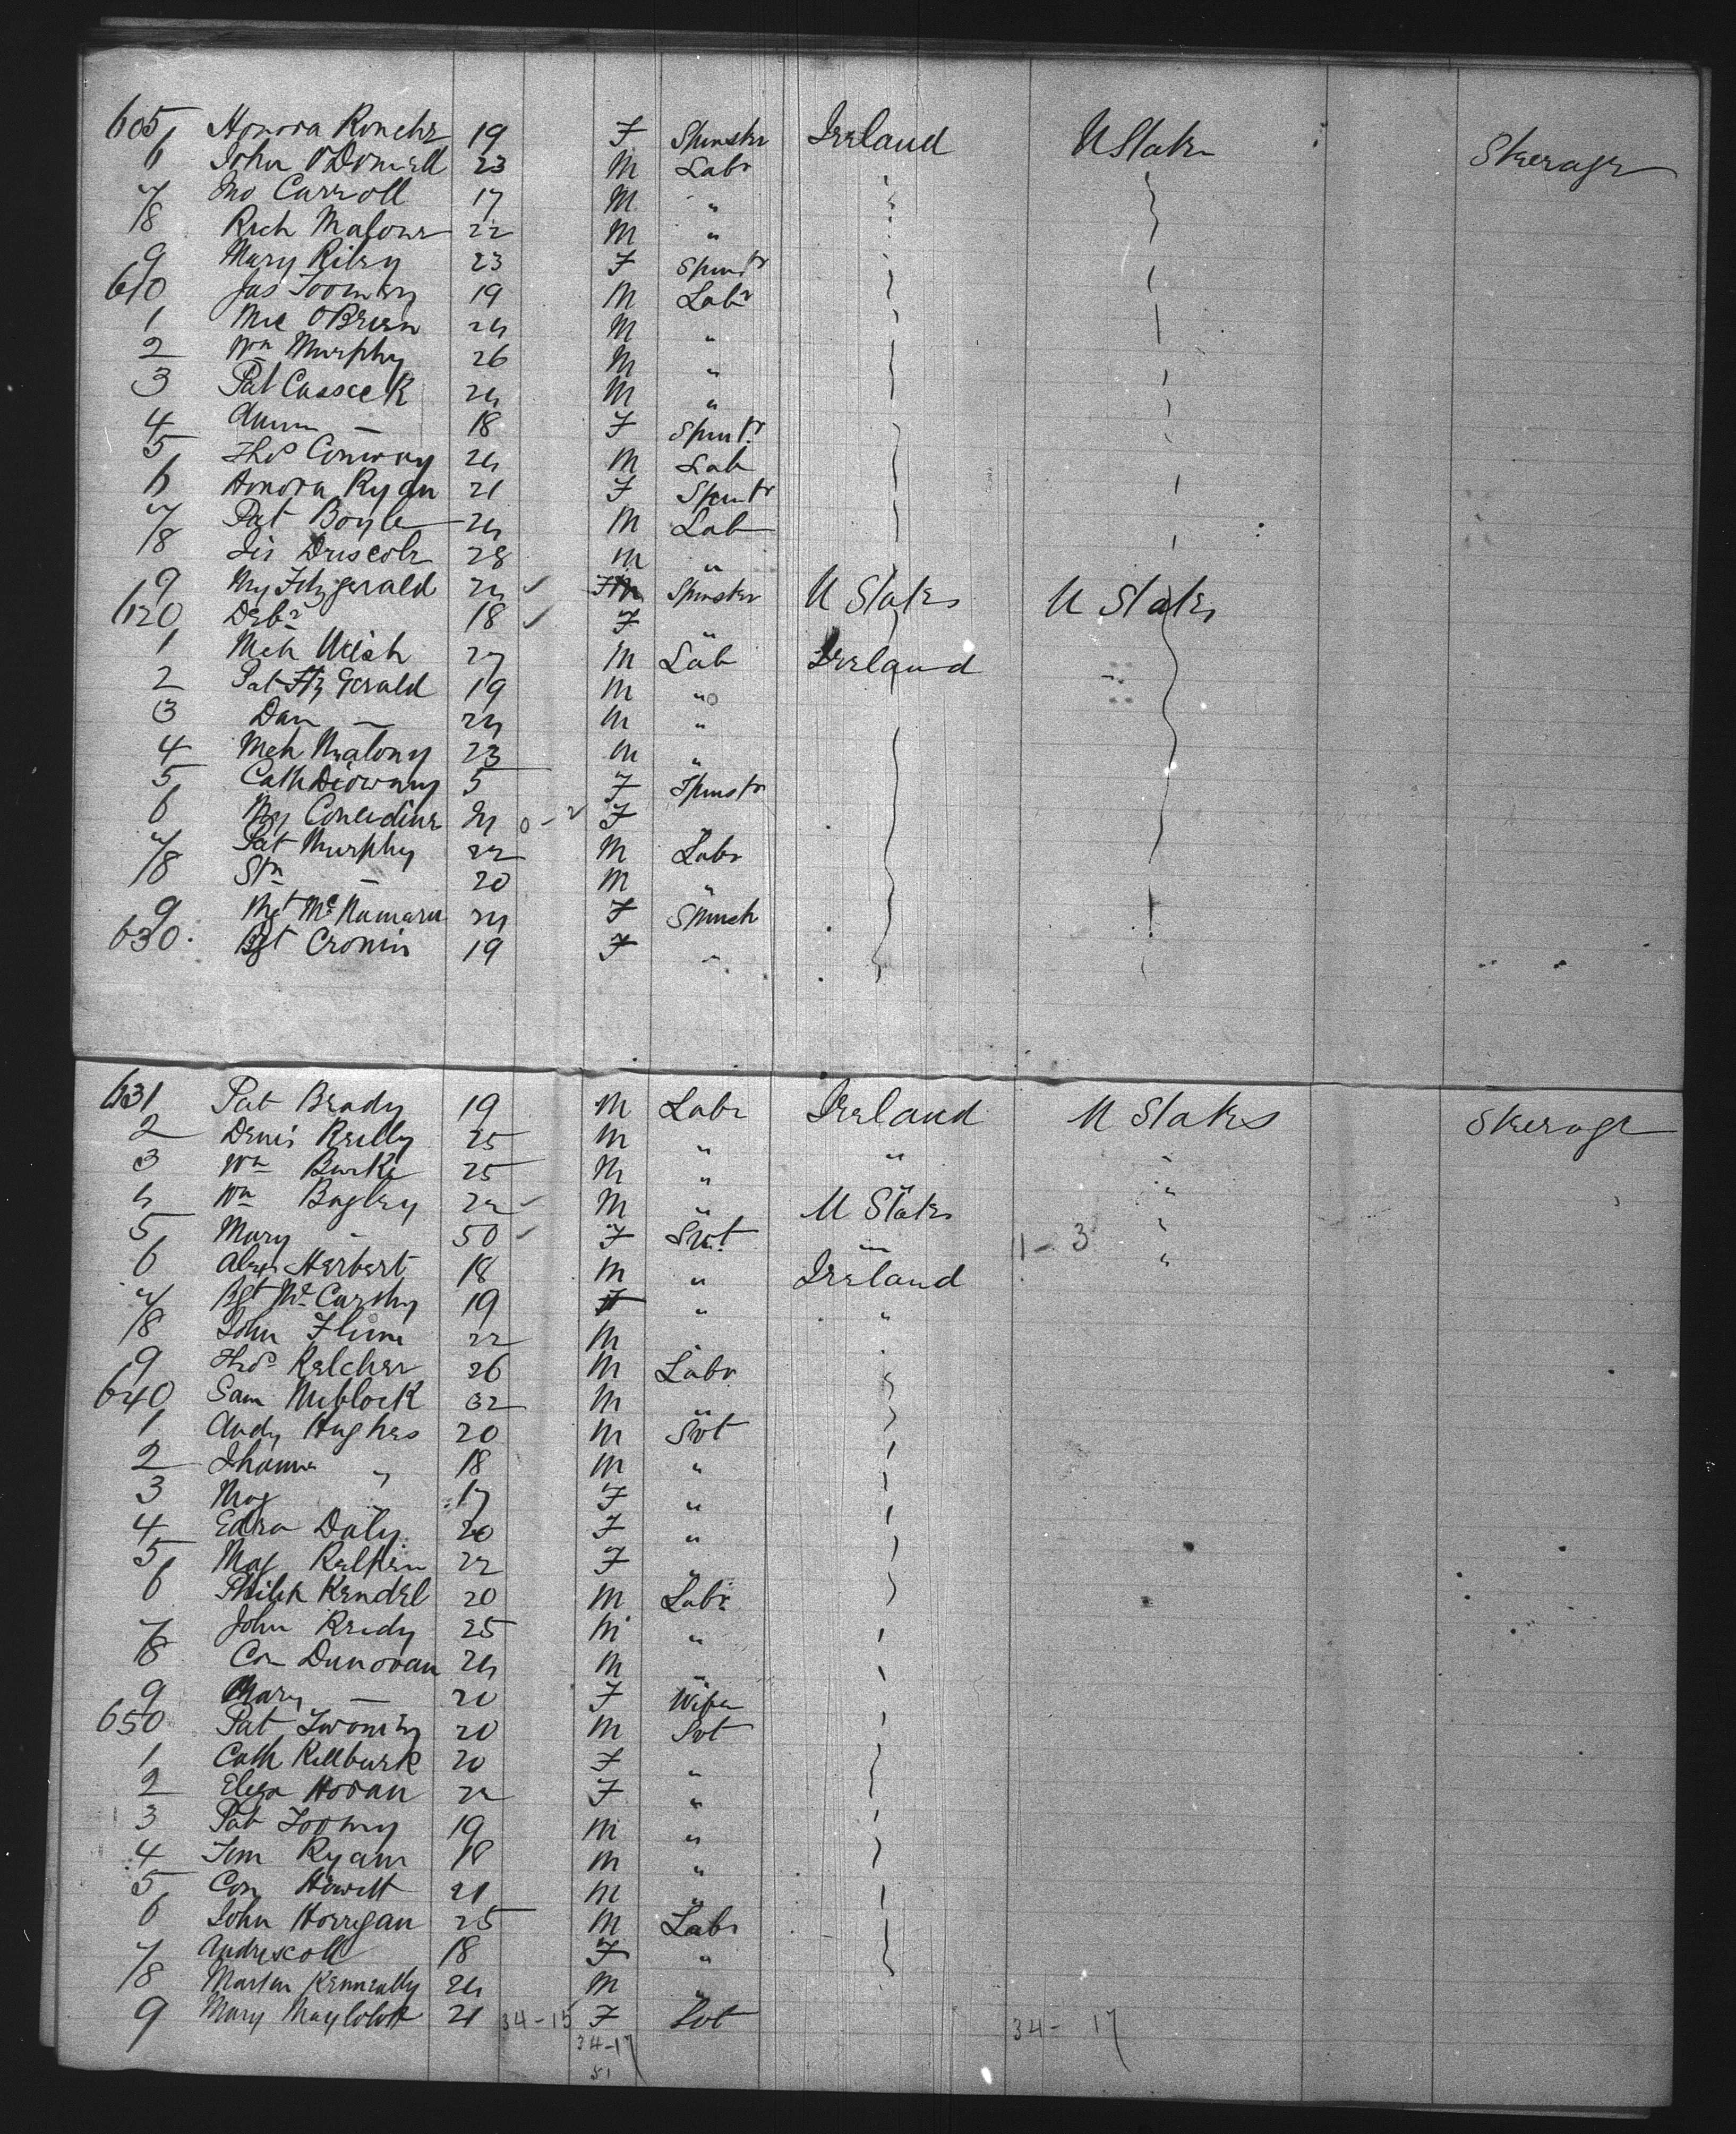 605 Honora 19 F Spinster Ireland U States Steerage
6 John O'Donnell 23 M Labr
7 Jno Carroll 17 M "
8 Rich 22 M "
9 Mary Riley 23 F Spinstr
610 Jas Toomey 19 M Labr
1 Mic O'Brien 24 M "
2 Wm Murphy 26 M "
3 Pat Cussack 24 M "
4 Ann — 18 F Spinstr
5 Thos Conway 24 M Lab
6 Honora Ryan 21 F Spinstr
7 Pat Boyle 24 M Lab
8 Driscole 28 M "
9 My Fitzgerald 24 ✓ F Spinster U States U States
620 Deb 18 ✓ F "
1 Mch Welsh 27 M Lab Ireland
2 Pat Fitz Gerald 19 M "
3 Dan — 24 M "
4 Mch Malony 23 M "
5 Cath 5 F Spinstr
6 My Coneidine 24 0-2 F "
7 Pat Murphy 22 M Labr
8 — 20 M "
9 Mgt McNamara 24 F Spinstr
630 Bgt Cronin 19 F "
631 Pat Brady 19 M Labr Ireland U States Steerage
2 Denis Reilly 25 M " " "
3 Wm Burke 25 M " " "
4 Wm Bagley 22 ✓ M " U States
5 Mary " 50 ✓ F Svt " 1-3 "
6 Alex Herbert 18 M " Ireland
7 Bgt McCarthy 19 F " "
8 John 22 M "
9 Thos Kelcher 26 M Labr
640 Sam 32 M "
1 Andy Hughes 20 M Svt
2 " 18 M "
3 Mag 17 F "
4 Daly 20 F "
5 Mag 22 F "
6 Philip Kendel 20 M Labr
7 John Reidy 25 M "
8 Con Dunovan 24 M "
9 Mary — 20 F Wife
650 Pat Twomey 20 M Svt
1 Cath 20 F "
2 Eliza Horan 22 F "
3 Pat Toomy 19 M "
4 Tim Ryan 18 M "
5 Con Hewitt 21 M "
6 John Horrigan 25 M Labr
7 18 F "
8 Martin Kenneally 24 M "
9 Mary 21 34-15 F Svt 34-17
34-17
51